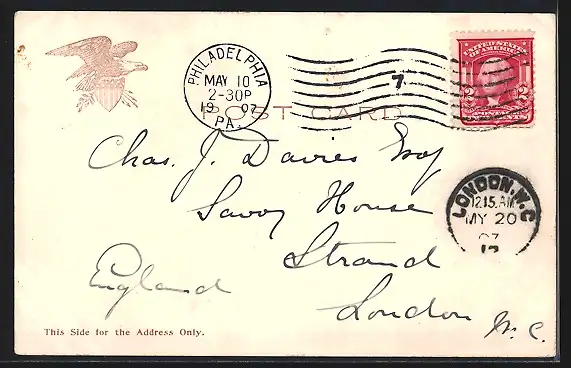 PHILADELPHIA
MAY 10
2-30P
1907
PA.
7
UNITED STATES
OF AMERICA
2 2
CENTS
POST CARD
Chas. J. Davies Esq
Savoy House
Strand
England
London
W.C.
LONDON. W.C
12.15.AM
MY 20
07
12
This Side for the Address Only.